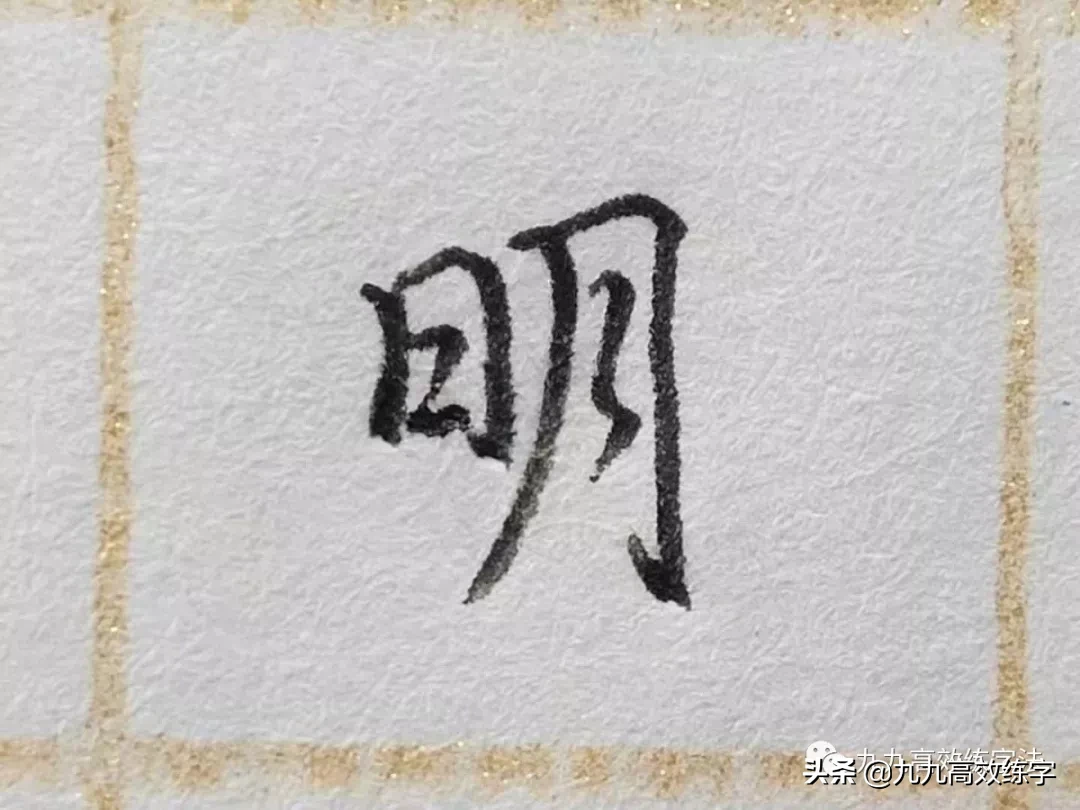 明
九九高效练字法
头条 @九九高效练字